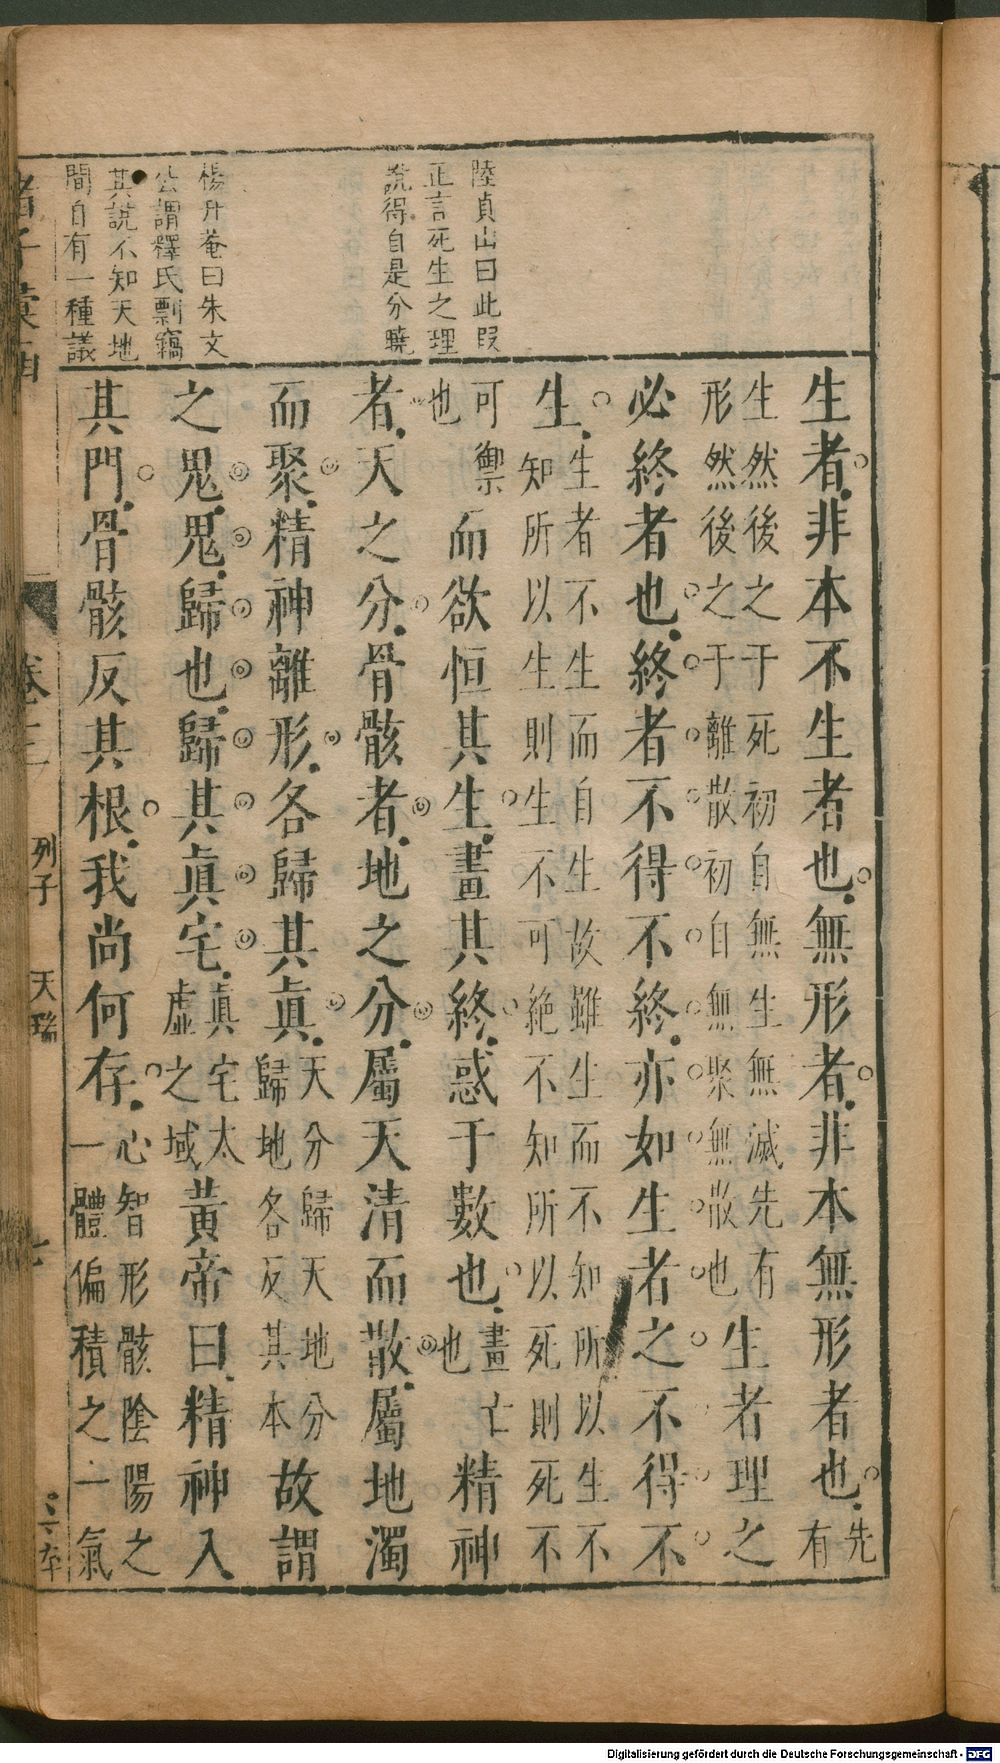 陸貞山曰此叚
正言死生之理
說得自是分曉
楊升菴曰朱文
公謂釋氏剽竊
其說不知天地
間自有一種議
生者非本不生者也無形者非本無形者也先有
生然後之于死初自無生無滅先有形然後之于離散初自無聚無散也生者理之
必終者也終者不得不終亦如生者之不得不
生生者不生而自生故雖生而不知所以生不知所以生則生不可絶不知所以死則死不
可禦也而欲恒其生畫其終惑于數也畫亡也精神
者天之分骨骸者地之分屬天清而散屬地濁
而聚精神離形各歸其眞天分歸天地分歸地各反其本故謂
之鬼鬼歸也歸其眞宅眞宅太虛之域黃帝曰精神入
其門骨骸反其根我尚何存心智形骸陰陽之一體偏積之一氣
列子 天瑞